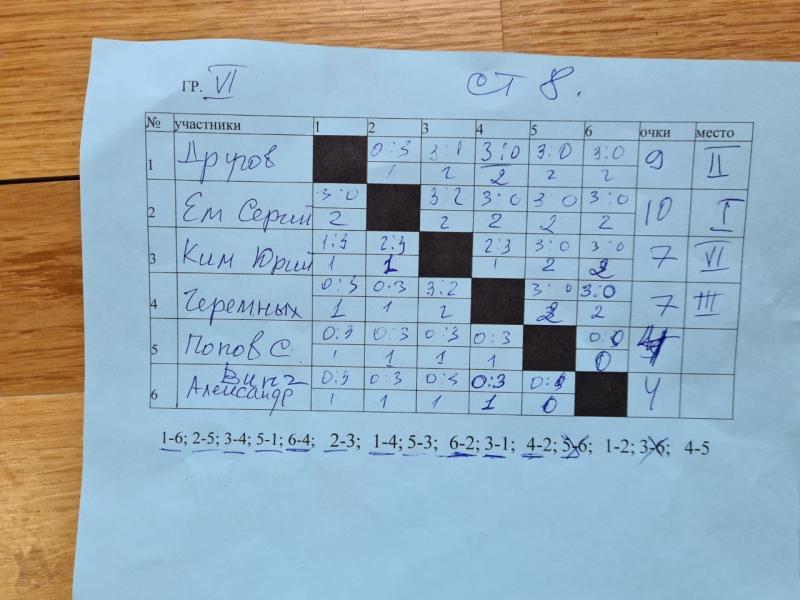 ГР. VI СТ 8.
№ участники 1 2 3 4 5 6 очки место
1 Другов 0:3 3:1 3:0 3:0 3:0 9 II
1 2 2 2 2
2 Ем Сергий 3:0 3:2 3:0 3 0 3:0 10 I
2 2 2 2 2
3 Ким Юрий 1:3 2:3 2:3 3:0 3:0 7 VI
1 1 1 2 2
4 Черемных 0:3 0:3 3:2 3:0 3:0 7 III
1 1 2 2 2
5 Попов С. 0:3 0:3 0:3 0:3 0:0 4
1 1 1 1 0
6 Александр 0:3 0:3 0:3 0:3 0:0 4
1 1 1 1 0
1-6; 2-5; 3-4; 5-1; 6-4; 2-3; 1-4; 5-3; 6-2; 3-1; 4-2; 5-6; 1-2; 3-6; 4-5